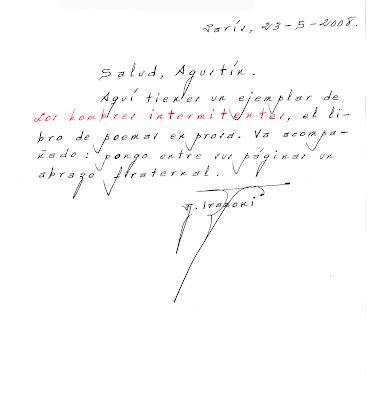 París, 23-5-2008.
Salud, Agustín.
Aquí tienes un ejemplar de
Los hombres intermitentes, el li-
bro de poemas en prosa. Va acompa-
ñado: pongo entre sus páginas un
abrazo fraternal.
F. Irazoki